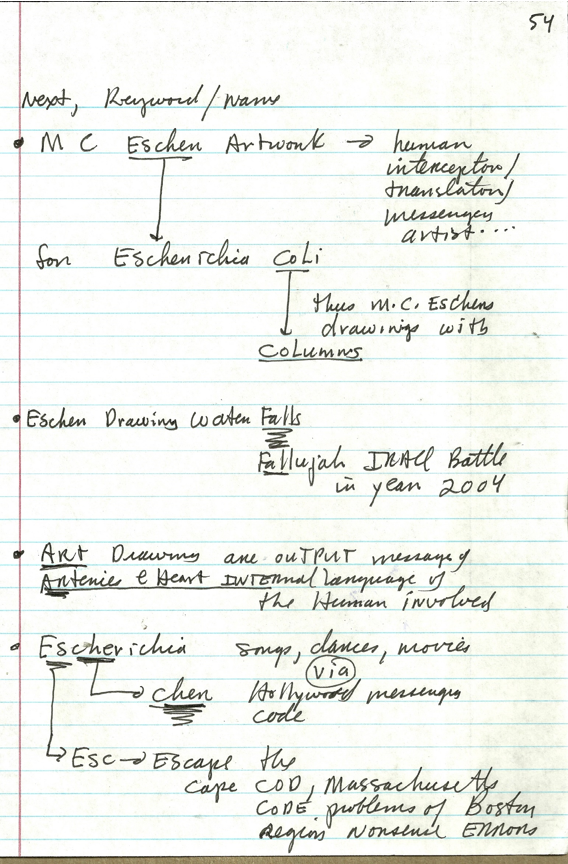 54
Next, Keyword/name
• M C Escher Artwork → human
interceptor/
translator/
messenger
artist....
for Escherichia Coli
thus M.C. Eschers
drawings with
Columns
• Escher Drawing Water Falls
Fallujah IRAQ Battle
in year 2004
• Art Drawing are outPut message of
Arteries & Heart INTERNAL language of
the Human involved
• Escherichia songs, dances, movies
via
cher Hollywood messenger
code
Esc → Escape the
cape COD, Massachusetts
CODE problems of Boston
Region Nonsense ERRORS